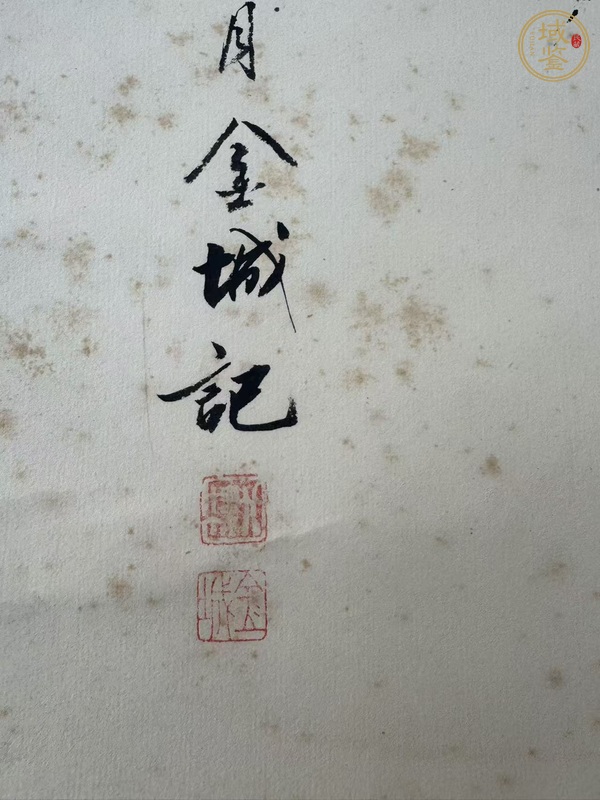 月
金
城
記
金城
域鉴